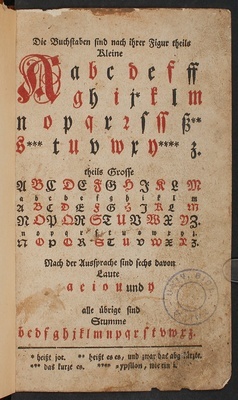 Die Buchstaben sind nach ihrer Figur theils
Kleine
A a b c d e f ff
g h i k l m
n o p q r ſ ſſ ß**
s*** t u v w x y**** z.
theils Grosse
A B C D E F G H J K L M
a b c d e f g h i k l m
A B C D E F G H J K L M
N O P Q R S T U V W X Y Z.
n o p q r s t u v w x y z.
N O P Q R S T U V W X Y Z.
Nach der Aussprache sind sechs davon
Laute
a e i o u und y
alle übrige sind
Stumme
b c d f g h j k l m n p q r s t v w x z.
* heißt jot. ** heißt es es, und
*** das kurze es. **** ypsilon, wie ein i.